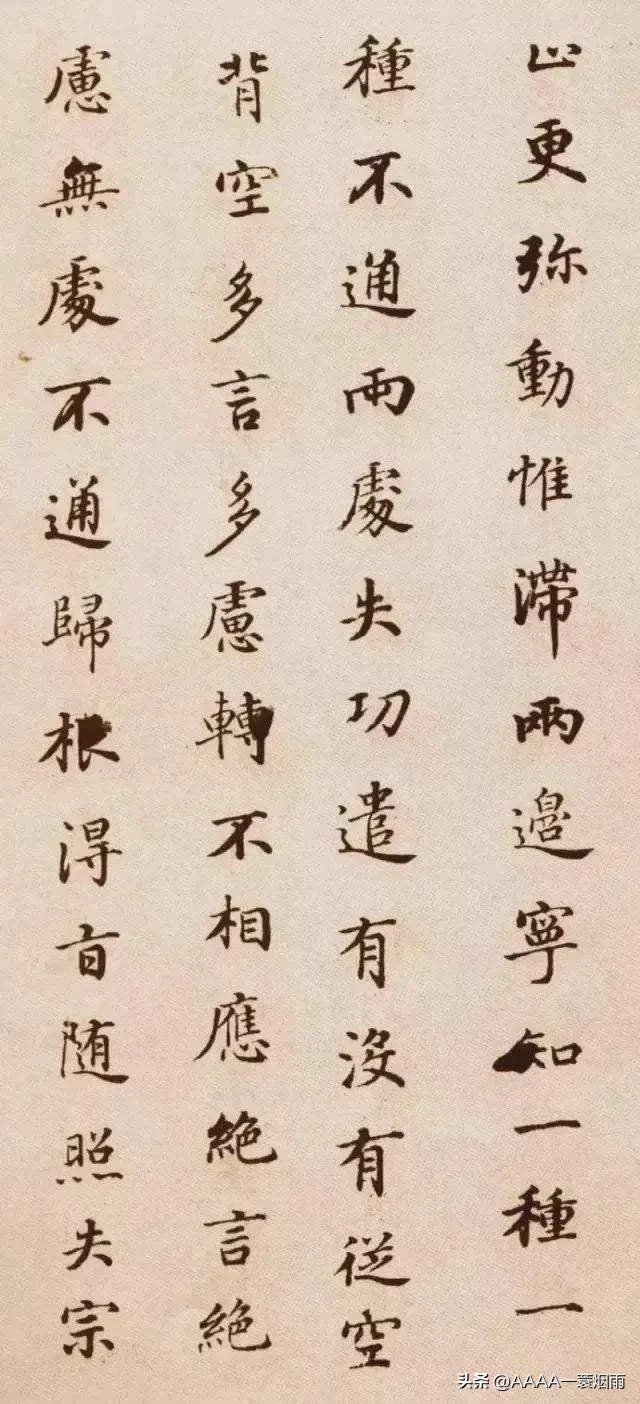 止更弥動惟滯兩邉寧知一種一
種不通兩處失功遣有沒有從空
背空多言多慮轉不相應絶言絶
慮無處不通歸根得旨随照失宗
头条 @AAAA一蓑烟雨